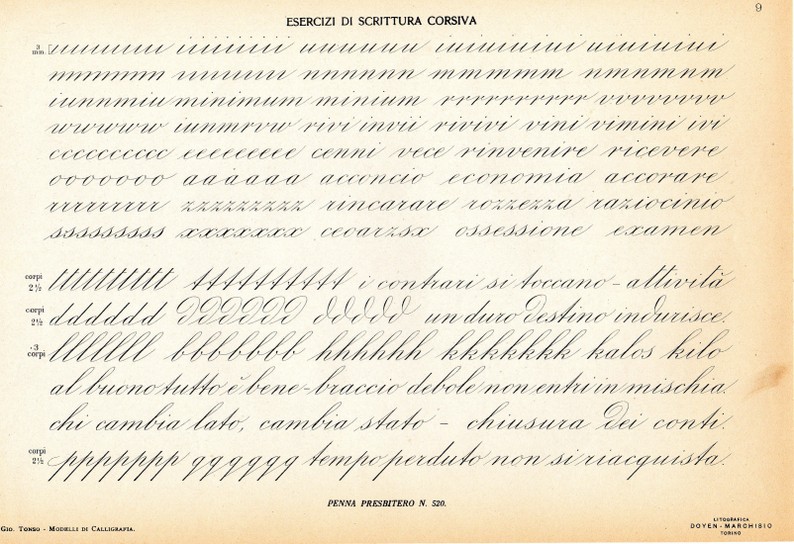 9
ESERCIZI DI SCRITTURA CORSIVA
3 mm. ııııııııııı iiiiiiiii uuuuuuu iuiuiuiuini uiuiuiuini
mmmmmm nnnnnn nnnnnn mmmmmm nmnmnm
iunnmiu minimum minium rrrrrrrrrrr vvvvvvvv
wwwwww iunmrvw rivi invii rivivi vini vimini ivi
cccccccccc eeeeeeeee cenni vece rinvenire ricevere
ooooooo aaaaaa acconcio economia accorare
rrrrrrrrr zzzzzzzzz rincarare rozzezza raziocinio
sssssssss xxxxxxx ceoarzsx ossessione examen
corpi 2½ tttttttttt tttttttttt i contrari si toccano - attività
corpi 2½ dddddd dddddd ddddd un duro destino indurisce.
3 corpi llllllll bbbbbbbb hhhhhh kkkkkkk kalos kilo
al buono tutto è bene - braccio debole non entri in mischia.
chi cambia lato, cambia stato - chiusura dei conti.
corpi 2½ ppppppp qqqqqq tempo perduto non si riacquista.
PENNA PRESBITERO N. 520.
GIO. TONSO - MODELLI DI CALLIGRAFIA.
LITOGRAFICA
DOYEN - MARCHISIO
TORINO